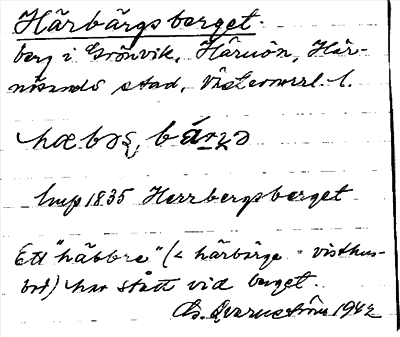 Härbärgsberget.
berg i Grönvik, Härnön, Här-
nösands stad, Västernorrl. l.
hæbɔʂ, bárʒɔ
Lmp 1835 Herrbergsberget
Ett "häbbre" (< härbärge = visthus-
bod) har stått vid berget.
D. Qvarnström 1942